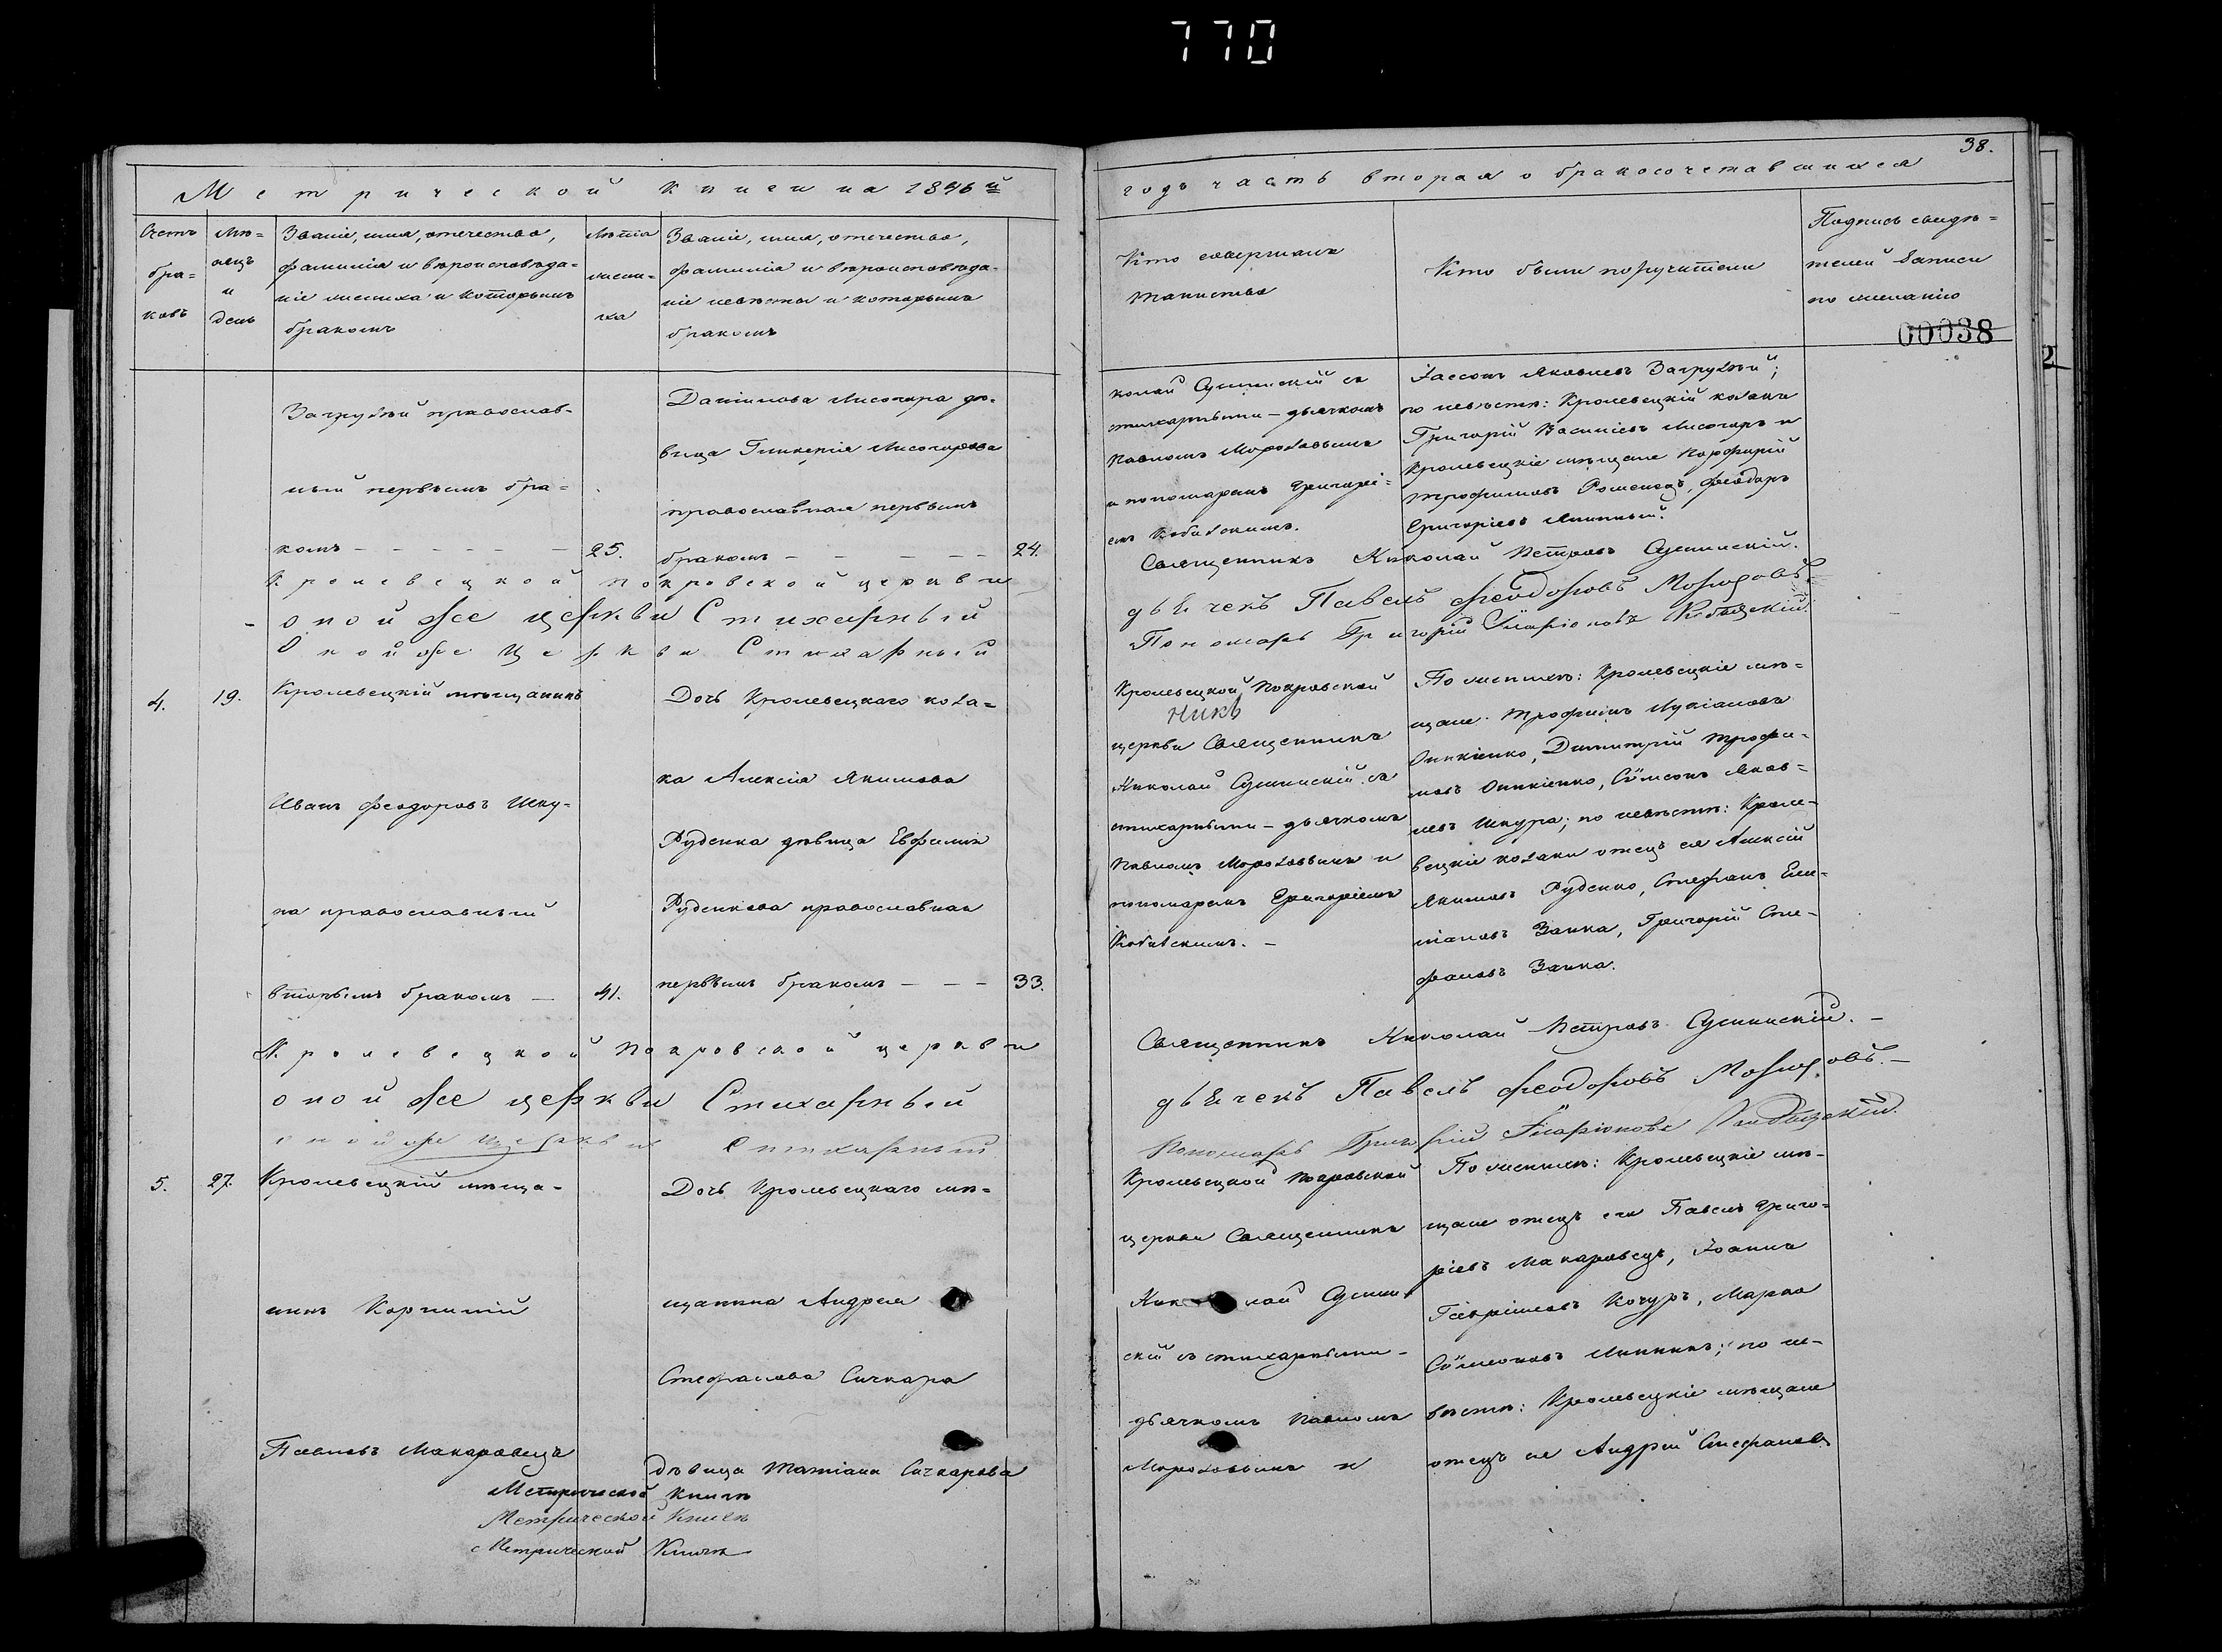 770
38.
Метрической книги на 1846й
годъ часть вторая о бракосочетавшихся
Счетъ бра=
ковъ
Мѣ=
сяцъ
и
день
Званіе, имя, отечество,
фамилія и вѣроисповѣда=
ніе жениха и которымъ
бракомъ
Лѣта
жени=
ха
Званіе, имя, отечество,
фамилія и вѣроисповѣда=
ніе невѣсты и которымъ
бракомъ
Кто совершалъ
таинство
Кто были поручители
Подпись свидѣ=
телей записи
по желанію
00038
Загрубный православ=
ный первымъ бра=
комъ - - - - - 25.
Даніилова Лисогора дѣ=
вица Гликерія Лисогорова
православная первымъ
бракомъ - - - - - 24.
колай Сѣ съ
стихарными - дьячкомъ
Павломъ Морозовымъ
и пономаремъ Григорі=
емъ
Іассонъ Яковлевъ Загрубный;
по невѣстѣ: Кролевецкій козакъ
Григорій Василіевъ Лисогоръ и
Кролевецкіе мѣщане Порфирій
Трофимовъ Роменецъ, Феодоръ
Григоріевъ
Кролевецкой Покровской церкви
Священникъ Николай Петровъ
оной же церкви Стихарный
дьячекъ Павелъ Феодоровъ Морозовъ.
Оной же Церкви Стихарный
Пономарь Григорій Иларіоновъ
4.
19.
Кролевецкій мѣщанинъ
Иванъ Феодоровъ Шку=
ра православный
вторымъ бракомъ — 41.
Дочь Кролевецкаго коза=
ка Алексія Якимова
Руденка дѣвица Евфимія
Руденкова православная
первымъ бракомъ - - - 33.
Кролевецкой Покровской
никъ
церкви Священникъ
Николай съ
стихарными - дьячкомъ
Павломъ Морозовымъ и
пономаремъ Григоріемъ
По женихѣ: Кролевецкіе мѣ=
щане Трофимъ Лукіановъ
Оникіенко, Димитрій Трофи=
мовъ Оникіенко, Сѵмеонъ Яков=
левъ Шкура; по невѣстѣ: Кроле=
вецкіе козаки отецъ ея Алексій
Якимовъ Руденко, Стефанъ Еме=
ліановъ Заика, Григорій Сте=
фановъ Заика.
Кролевецкой Покровской церкви
Священникъ Николай Петровъ
оной же церкви Стихарный
дьячекъ Павелъ Феодоровъ Морозовъ. —
оной же Церкви Стихарный
Пономарь Григорій Иларіоновъ
5.
27.
Кролевецкій мѣща=
нинъ Корнилій
Павловъ Макаровецъ
Дочь Кролевецкаго мѣ=
щанина Андрея
Стефанова Сичкара
дѣвица Татіана Сичкарова
Кролевецкой Покровской
церкви Священникъ
Николай
скій съ стихарными -
дьячкомъ Павломъ
Морозовымъ и
По женихѣ: Кролевецкіе мѣ=
щане отецъ его Павелъ Григо=
ріевъ Макаровецъ, Іоаннъ
Гавріиловъ Кочуръ, Марко
Сѵмеоновъ; по не=
вѣстѣ: Кролевецкіе мѣщане
отецъ ея Андрей Стефановъ
Метрической книги
Метрической Книги
Метрической Книги